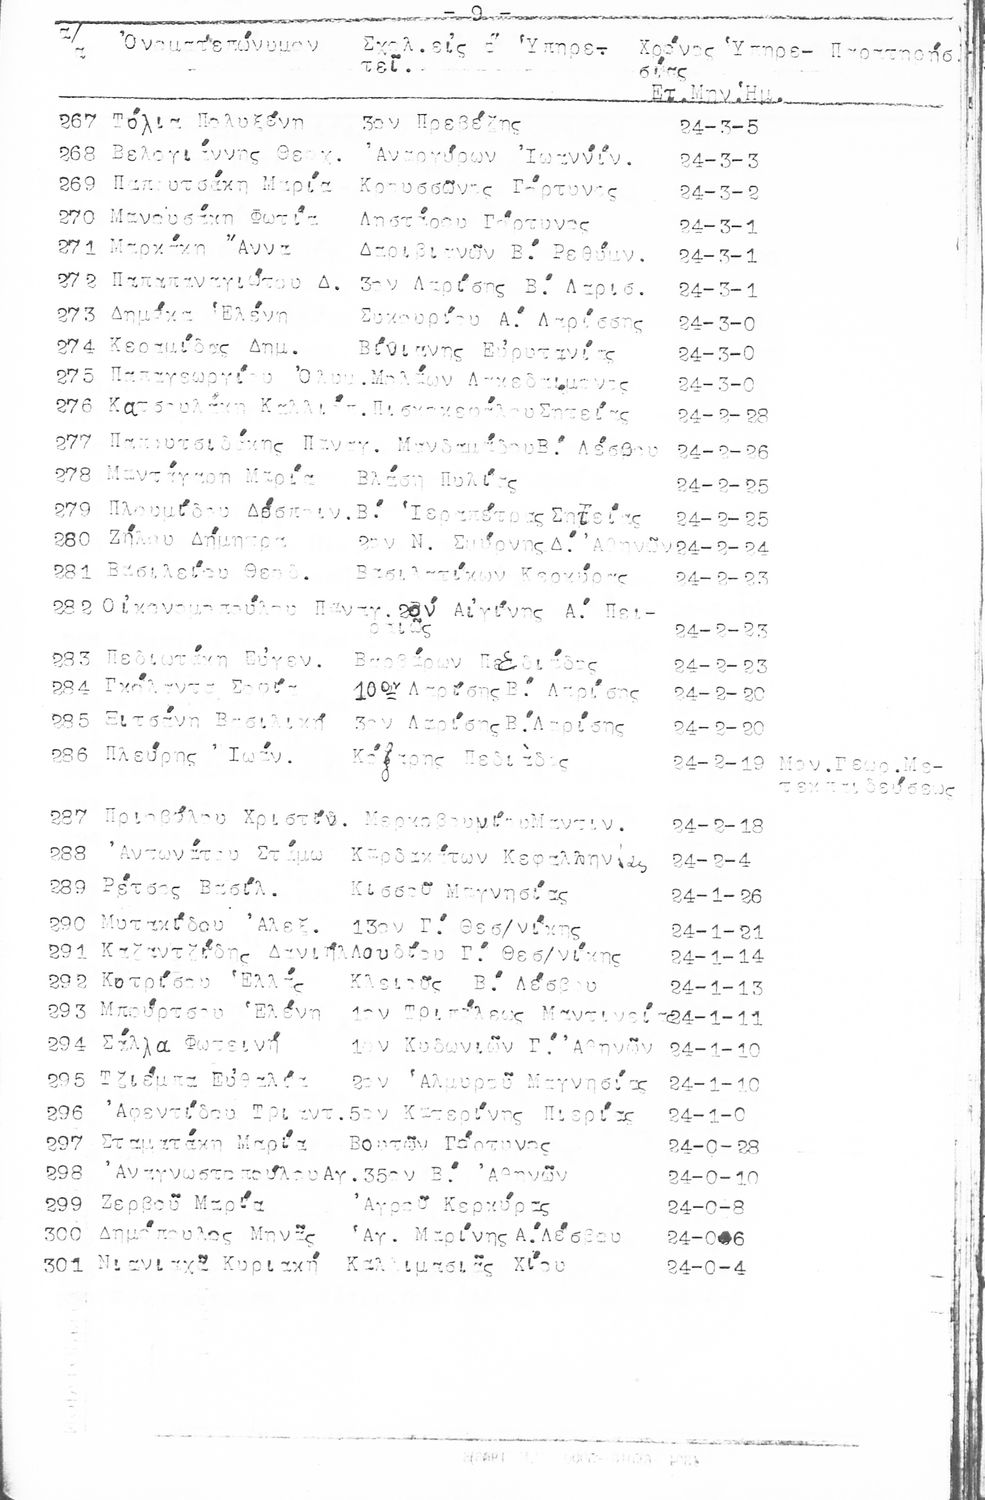 - 9 -
α/α Ὀνοματεπώνυμον Σχολ.εἰς ἥ Ὑπηρε- Χρόνος Ὑπηρε- Παρατηρήσ.
τεῖ. σίας
Ἔτ.Μην.Ἡμ.
267 Τόλια Πολυξένη 3ον Πρεβέζης 24-3-5
268 Βελογιάννης Θεοχ. Ἀναργύρων Ἰωαννίν. 24-3-3
269 Παπουτσάκη Μαρία Κρουσσῶνος Γόρτυνος 24-3-2
270 Μανουσάκη Φωτία Ληστάρου Γόρτυνος 24-3-1
271 Μαρκάκη Ἄννα Δαριβιανῶν Β.΄ Ρεθύμν. 24-3-1
272 Παπαπαναγιώτου Δ. 3ον Λαρίσης Β.΄ Λαρισ. 24-3-1
273 Δημάκα Ἑλένη Συκουρίου Α.΄ Λαρίσσης 24-3-0
274 Κεραμίδας Δημ. Βίνιανης Εὐρυτανίας 24-3-0
275 Παπαγεωργίου Ὀλυμ.Μολάων Λακεδαίμονος 24-3-0
276 Κατσουλάκη Καλλιόπ.Πισκοκεφάλου Σητείας 24-2-28
277 Παπουτσιδάκης Παναγ. Μανδαμάδου Β.΄ Λέσβου 24-2-26
278 Μαντάγαρη Μαρία Βλάση Πυλίας 24-2-25
279 Πλουμίδου Δέσποιν.Β.΄ Ἱεραπέτρας Σητείας 24-2-25
280 Ζήλου Δήμητρα 2ον Ν. Σμύρνης Δ.΄ Ἀθηνῶν 24-2-24
281 Βασιλείου Θεοδ. Βασιλατίκων Κερκύρας 24-2-23
282 Οἰκονομοπούλου Παναγ.2ον Αἰγίνης Α.΄ Πει-
ραιῶς 24-2-23
283 Πεδιωτάκη Εὐγεν. Βαρβάρων Πεδιάδος 24-2-23
284 Γκόλαντα Σοφία 10ον Λαρίσης Β.΄ Λαρίσης 24-2-20
285 Ξιτσάνη Βασιλική 3ον Λαρίσης Β.΄Λαρίσης 24-2-20
286 Πλεύρης Ἰωάν. Κόξαρης Πεδιάδος 24-2-19 Μον.Γεωρ.Με-
τεκπαιδεύσεως
287 Πριοβόλου Χριστίν. Μερκοβουνίου Μαντιν. 24-2-18
288 Ἀντωνάτου Στάμω Καρδακάτων Κεφαλληνίας 24-2-4
289 Ρέτσος Βασίλ. Κισσοῦ Μαγνησίας 24-1-26
290 Μυτακίδου Ἀλεξ. 13ον Γ.΄ Θεσ/νίκης 24-1-21
291 Καζαντζίδης Δανιήλ Λουδίου Γ.΄ Θεσ/νίκης 24-1-14
292 Κοτρίσου Ἑλλάς Κλειοῦς Β.΄ Λέσβου 24-1-13
293 Μπούρτσου Ἑλένη 1ον Τριπόλεως Μαντινείας 24-1-11
294 Σάλλα Φωτεινή 1ον Κυδωνιῶν Γ.΄ Ἀθηνῶν 24-1-10
295 Τζιέμπα Εὐθαλία 2ον Ἀλμυροῦ Μαγνησίας 24-1-10
296 Ἀφεντίδου Τριαντ.5ον Κατερίνης Πιερίας 24-1-0
297 Σταματάκη Μαρία Βουτῶν Γόρτυνος 24-0-28
298 Ἀναγνωστοπούλου Αγ.35ον Β.΄ Ἀθηνῶν 24-0-10
299 Ζερβοῦ Μαρία Ἀγροῦ Κερκύρας 24-0-8
300 Δημόπουλος Μηνᾶς Ἁγ. Μαρίνης Α.΄Λέσβου 24-0-6
301 Νιανιακᾶ Κυριακή Καλλιμασιᾶς Χίου 24-0-4